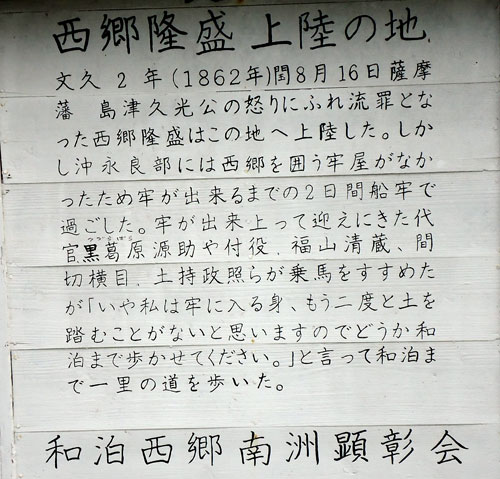 西郷隆盛上陸の地
文久2年(1862年)閏8月16日薩摩
藩 島津久光公の怒りにふれ流罪とな
った西郷隆盛はこの地へ上陸した。しか
し沖永良部には西郷を囲う牢屋がなか
ったため牢が出来るまでの2日間船牢で
過ごした。牢が出来上って迎えにきた代
官黒葛原源助や付役、福山清蔵、間
切横目、土持政照らが乗馬をすすめた
が「いや私は牢に入る身、もう二度と土を
踏むことがないと思いますのでどうか和
泊まで歩かせてください。」と言って和泊ま
で一里の道を歩いた。
和泊西郷南洲顕彰会